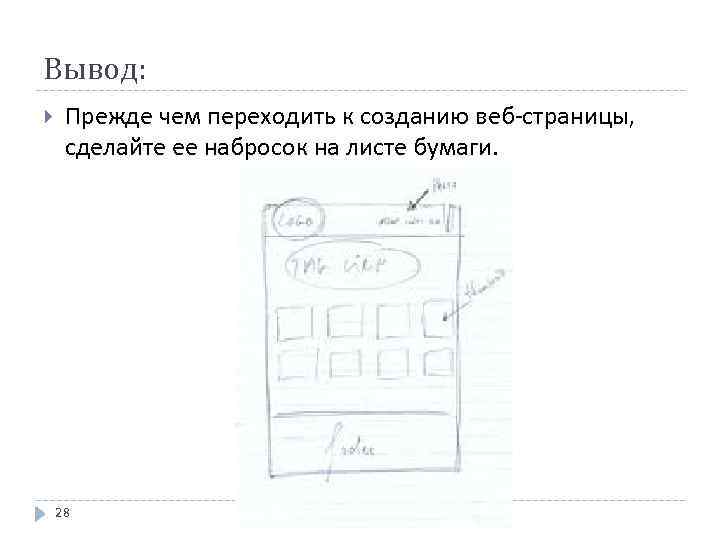 Вывод:
Прежде чем переходить к созданию веб-страницы,
сделайте ее набросок на листе бумаги.
LOGO
TAG LINE
28